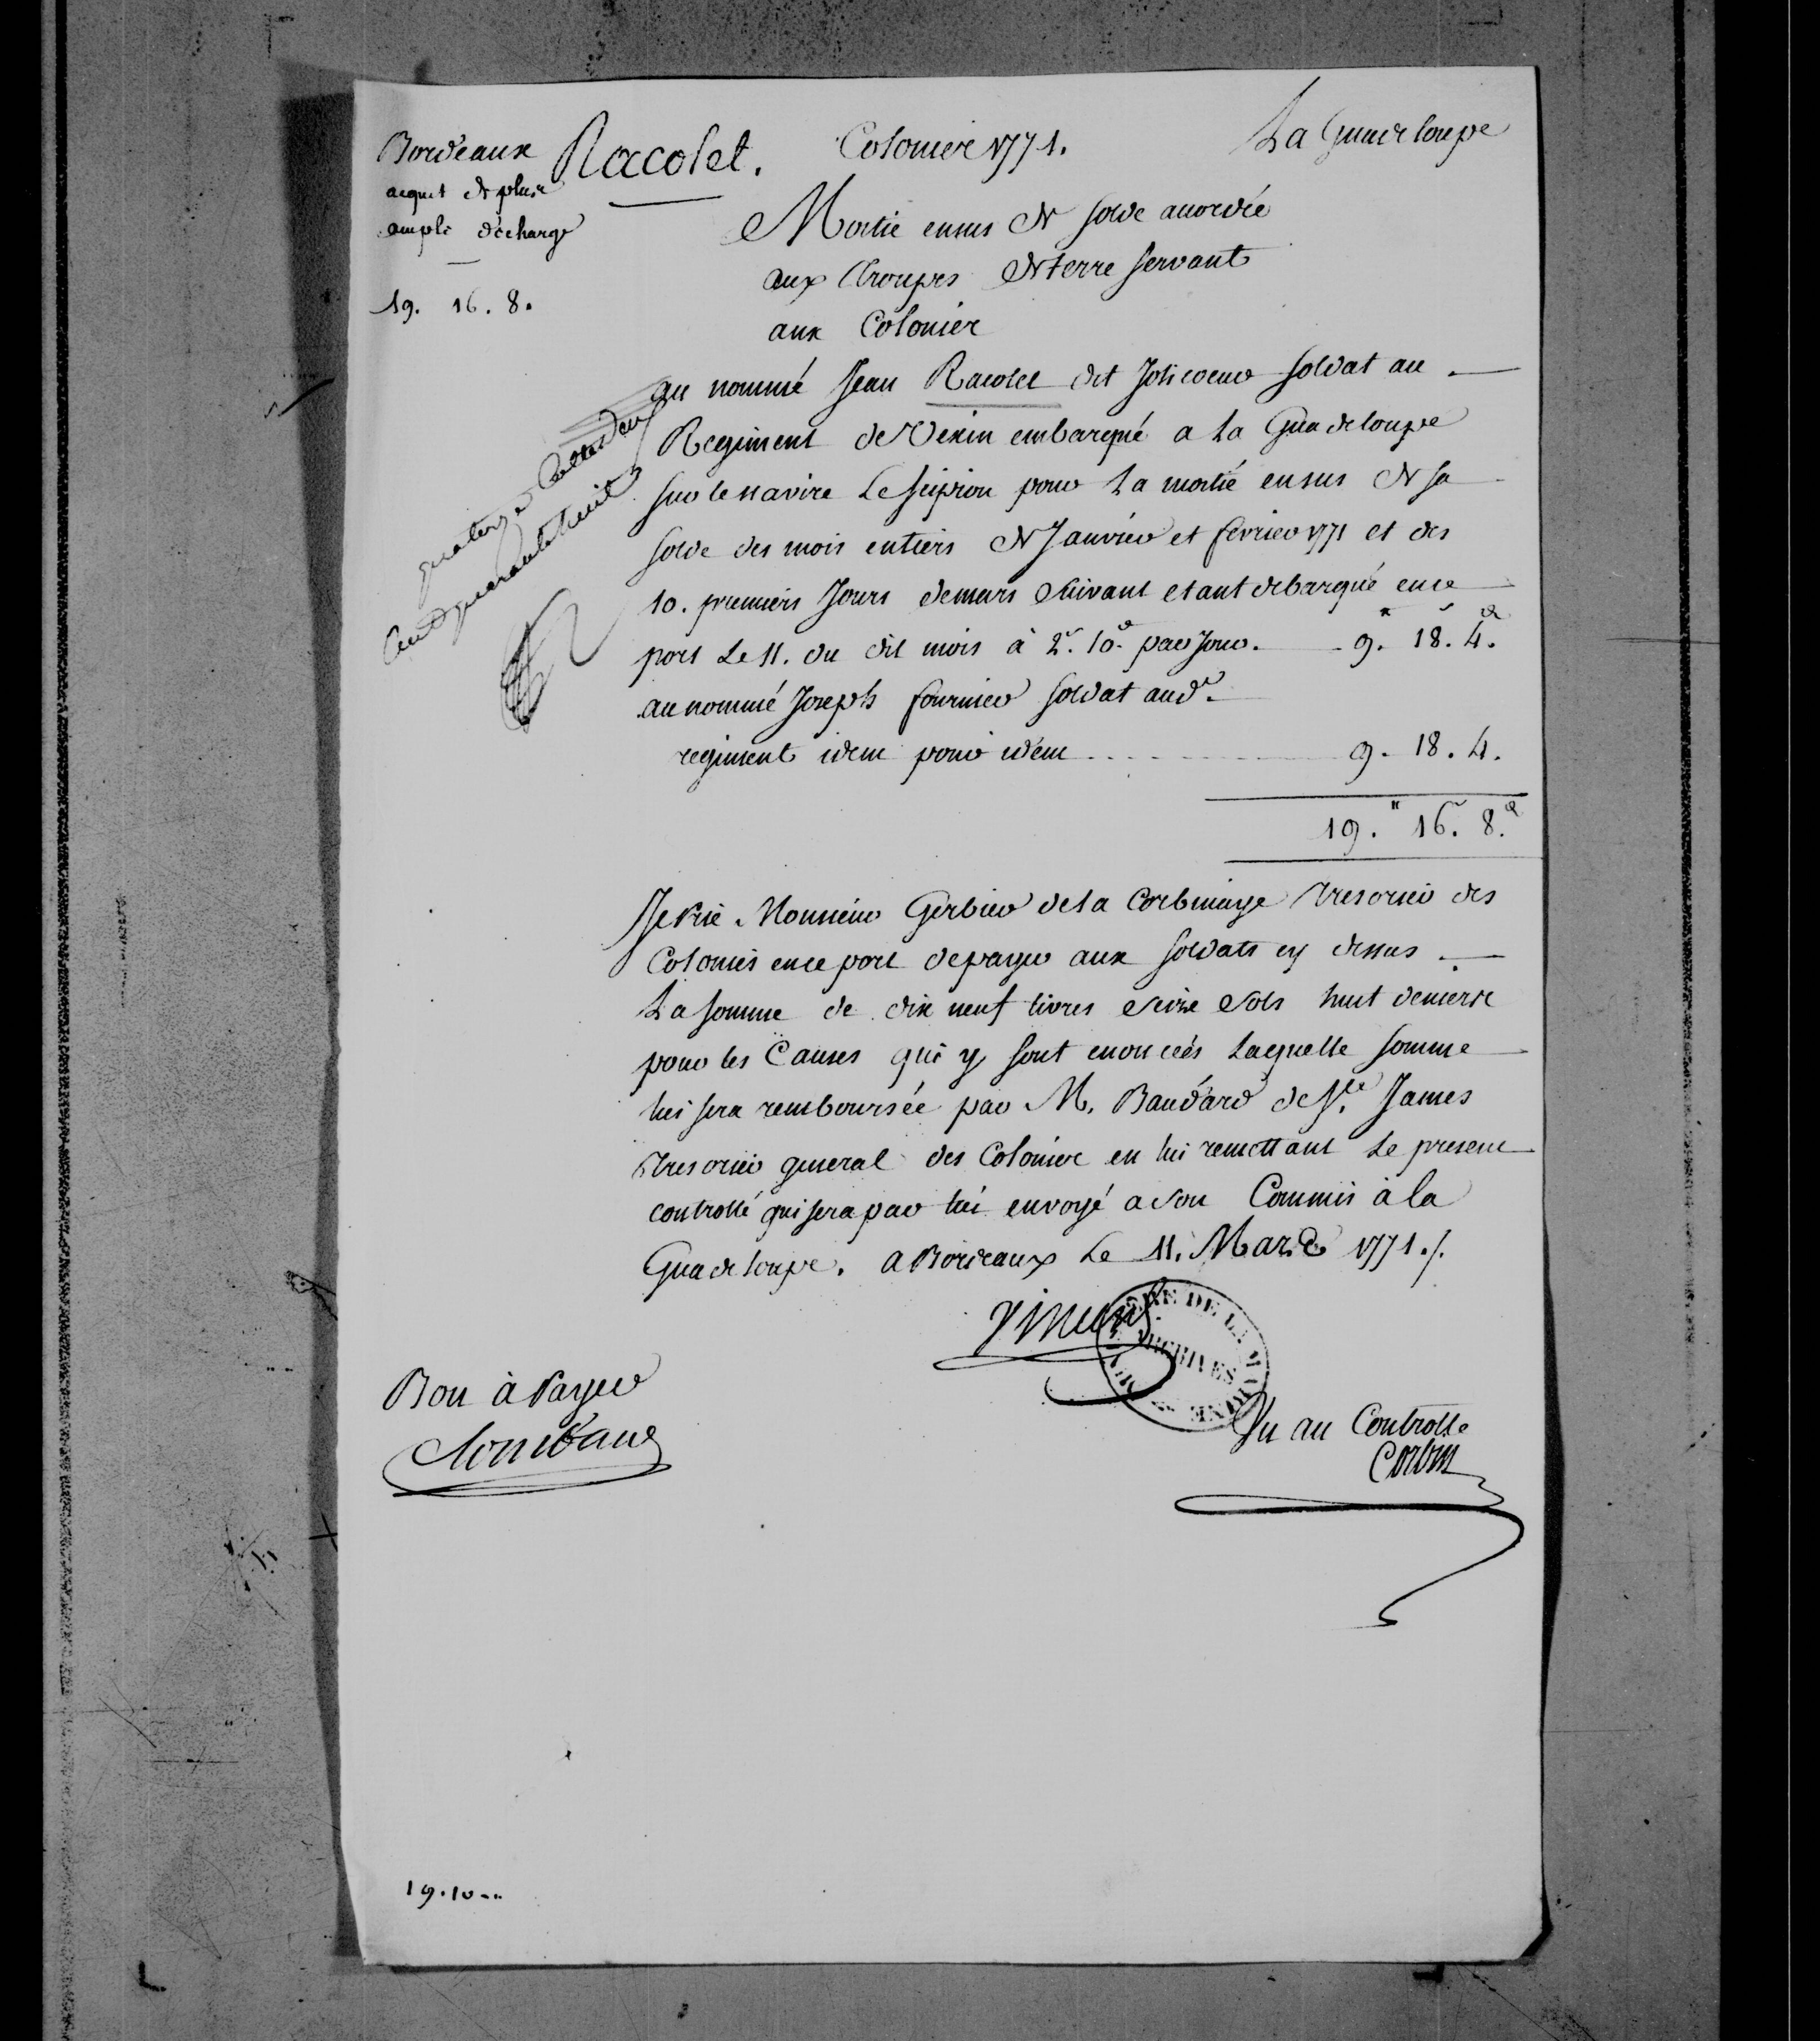 Bordeaux
acquit de plus
ample décharge
19. 16. 8.
Racolet.
Colonies 1771.
La Guadeloupe
Moitié ensus de solde accordée
aux Troupes de terre servant
aux Colonies
au nommé Jean Racolet dit Jolicoeur soldat au
Regiment de Vexin embarqué a la Guadeloupe
sur le navire Le Scipion pour La moitié ensus de sa
solde des mois entiers de Janvier et fevrier 1771 et des
10. premiers Jours de mars Suivant etant debarqué en ce
port Le 11. du dit mois à 2s. 10d. par Jour. 9.# 18.s 4.d
au nommé Joseph fournier soldat aud.t
regiment idem pour idem 9. 18. 4.
19.# 16.s 8.d
quatorze
Cent quarante huit
Je Prie Monsieur Gerbier de la Corbinaye Tresorier des
Colonies en ce port de payer aux soldats cy dessus
La somme de dix neuf livres Seize Sols huit deniers
pour les Causes qui y sont enoncées Laquelle somme
lui sera remboursée par M. Baudard de S.te James
Tresorier general des Colonies en lui remettant Le present
controllé qui sera par lui envoyé a son Commis à la
Guadeloupe. a Bordeaux Le 11. Mars 1771./.
DE LA MARINE
ARCHIVES
Bon à Payer
Vu au Controlle
Corbin
19.10...